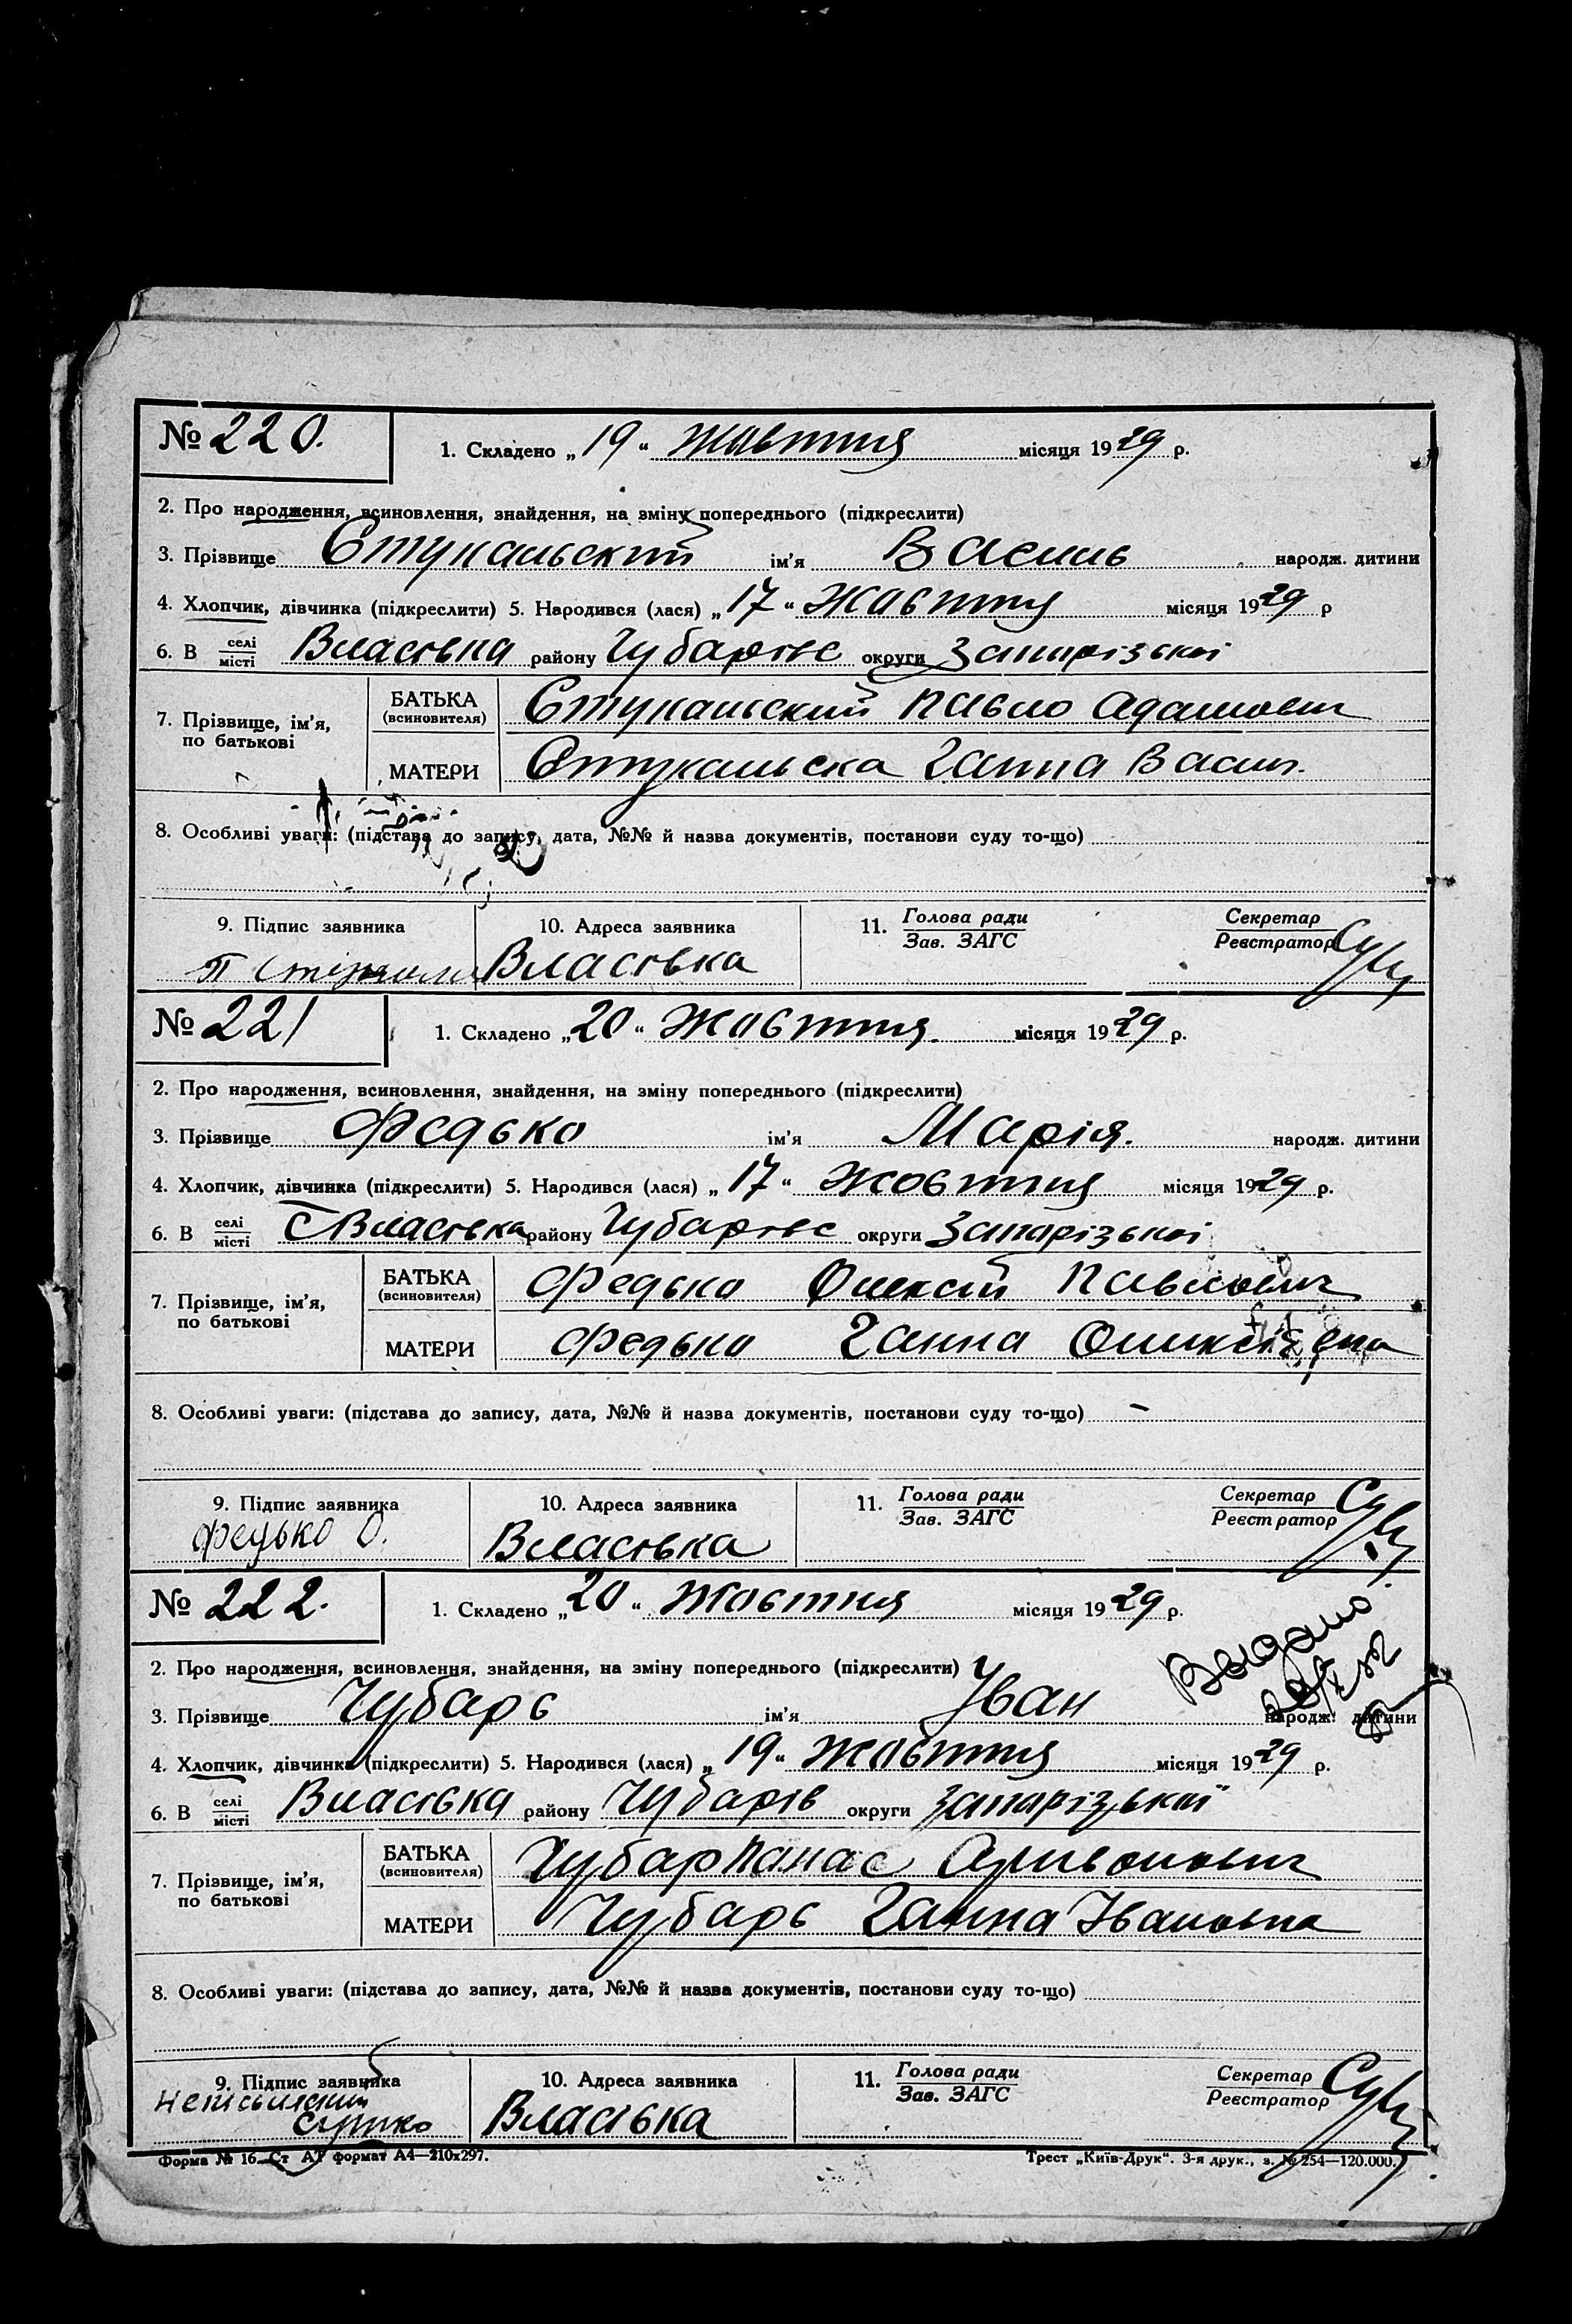 № 220. 1. Складено „19“ жовтня місяця 1929 р.
2. Про народження, всиновлення, знайдення, на зміну попереднього (підкреслити)
3. Прізвище Стукальский ім'я Василь народж. дитини
4. Хлопчик, дівчинка (підкреслити) 5. Народився (лася) „17“ жовтня місяця 1929 р
6. В селі місті Власівка району Чубарівс округи Запорізької
7. Прізвище, ім'я, по батькові
БАТЬКА (всиновителя) Стукальский Павло Адамович
МАТЕРИ Стукальска Ганна Васил.
8. Особливі уваги: (підстава до запису, дата, №№ й назва документів, постанови суду то-що)
9. Підпис заявника 10. Адреса заявника 11. Голова ради Зав. ЗАГС Секретар Реєстратор
П Власівка
№ 221 1. Складено „20“ жовтня. місяця 1929 р.
2. Про народження, всиновлення, знайдення, на зміну попереднього (підкреслити)
3. Прізвище Федько ім'я Марія. народж. дитини
4. Хлопчик, дівчинка (підкреслити) 5. Народився (лася) „17“ жовтня місяця 1929 р.
6. В селі місті С Власівка району Чубарівс округи Запорізької
7. Прізвище, ім'я, по батькові
БАТЬКА (всиновителя) Федько Олексій Павлович
МАТЕРИ Федько Ганна
8. Особливі уваги: (підстава до запису, дата, №№ й назва документів, постанови суду то-що) -
9. Підпис заявника 10. Адреса заявника 11. Голова ради Зав. ЗАГС Секретар Реєстратор
Федько О. Власівка
№ 222. 1. Складено „20“ жовтня місяця 1929 р.
2. Про народження, всиновлення, знайдення, на зміну попереднього (підкреслити)
3. Прізвище Чубарь ім'я Іван народж. дитини
4. Хлопчик, дівчинка (підкреслити) 5. Народився (лася) „19“ жовтня місяця 1929 р.
6. В селі місті Власівка району Чубарів округи Запорізької
7. Прізвище, ім'я, по батькові
БАТЬКА (всиновителя) Чубар Панас
МАТЕРИ Чубарь Ганна Івановна
8. Особливі уваги: (підстава до запису, дата, №№ й назва документів, постанови суду то-що)
9. Підпис заявника 10. Адреса заявника 11. Голова ради Зав. ЗАГС Секретар Реєстратор
Власівка
Форма № 16. Ст АТ формат А4—210х297. Трест „Київ-Друк“. 3-я друк., з. № 254—120.000.